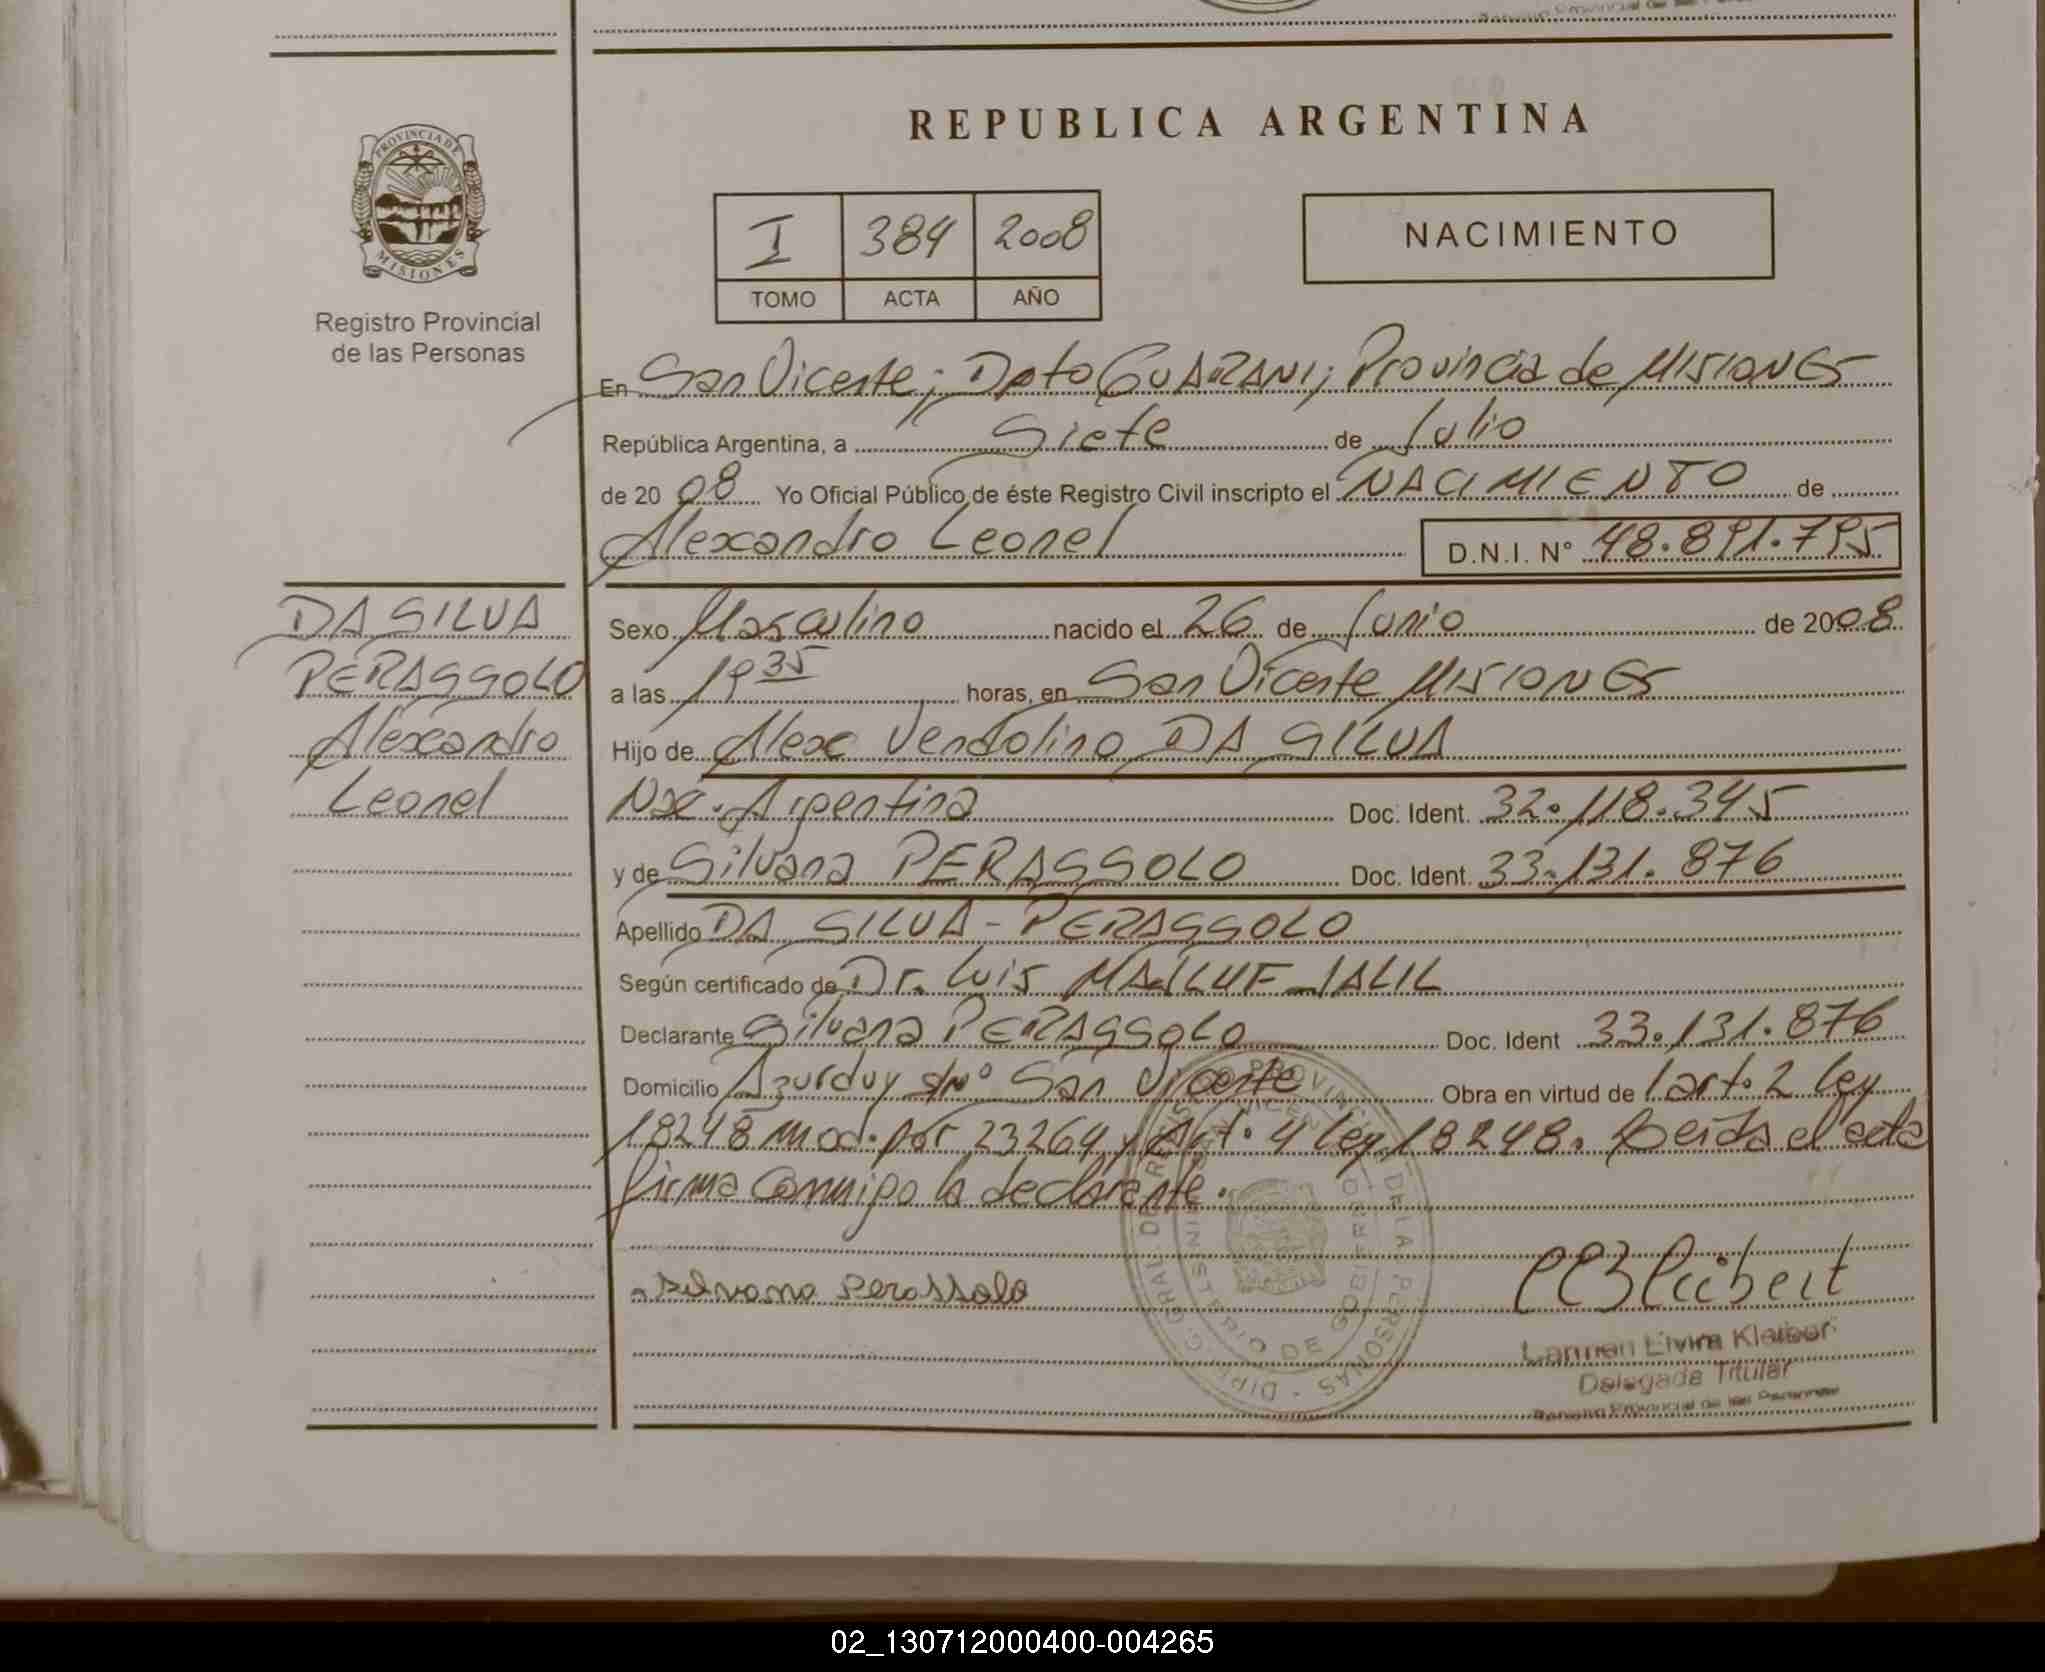 REPUBLICA ARGENTINA
PROVINCIA DE
MISIONES
Registro Provincial
de las Personas
I 384 2008
TOMO ACTA AÑO
NACIMIENTO
En San Vicente; Dpto GUARANI; Provincia de MISIONES
República Argentina, a Siete de Julio
de 2008 Yo Oficial Público de éste Registro Civil inscripto el NACIMIENTO de
Alexandro Leonel D.N.I. N° 48.891.795
DA SILVA
PERASSOLO
Alexandro
Leonel
Sexo Masculino nacido el 26 de Junio de 2008
a las 19 35 horas, en San Vicente MISIONES
Hijo de Alex Vendolino DA SILVA
Nac. Argentina Doc. Ident. 32.118.345
y de Silvana PERASSOLO Doc. Ident. 33.131.876
Apellido DA SILVA - PERASSOLO
Según certificado de Dr. Luis MAILUF JALIL
Declarante Silvana PERASSOLO Doc. Ident 33.131.876
Domicilio Azurduy s/n° San Vicente Obra en virtud de l art. 2 ley
18248 mod. por 23264 y Art. 4 ley 18248. Leída el acta
firma conmigo la declarante.
Silvana Perassolo
Carmen Elvira Kleiber
Delegada Titular
Registro Provincial de las Personas
02_130712000400-004265